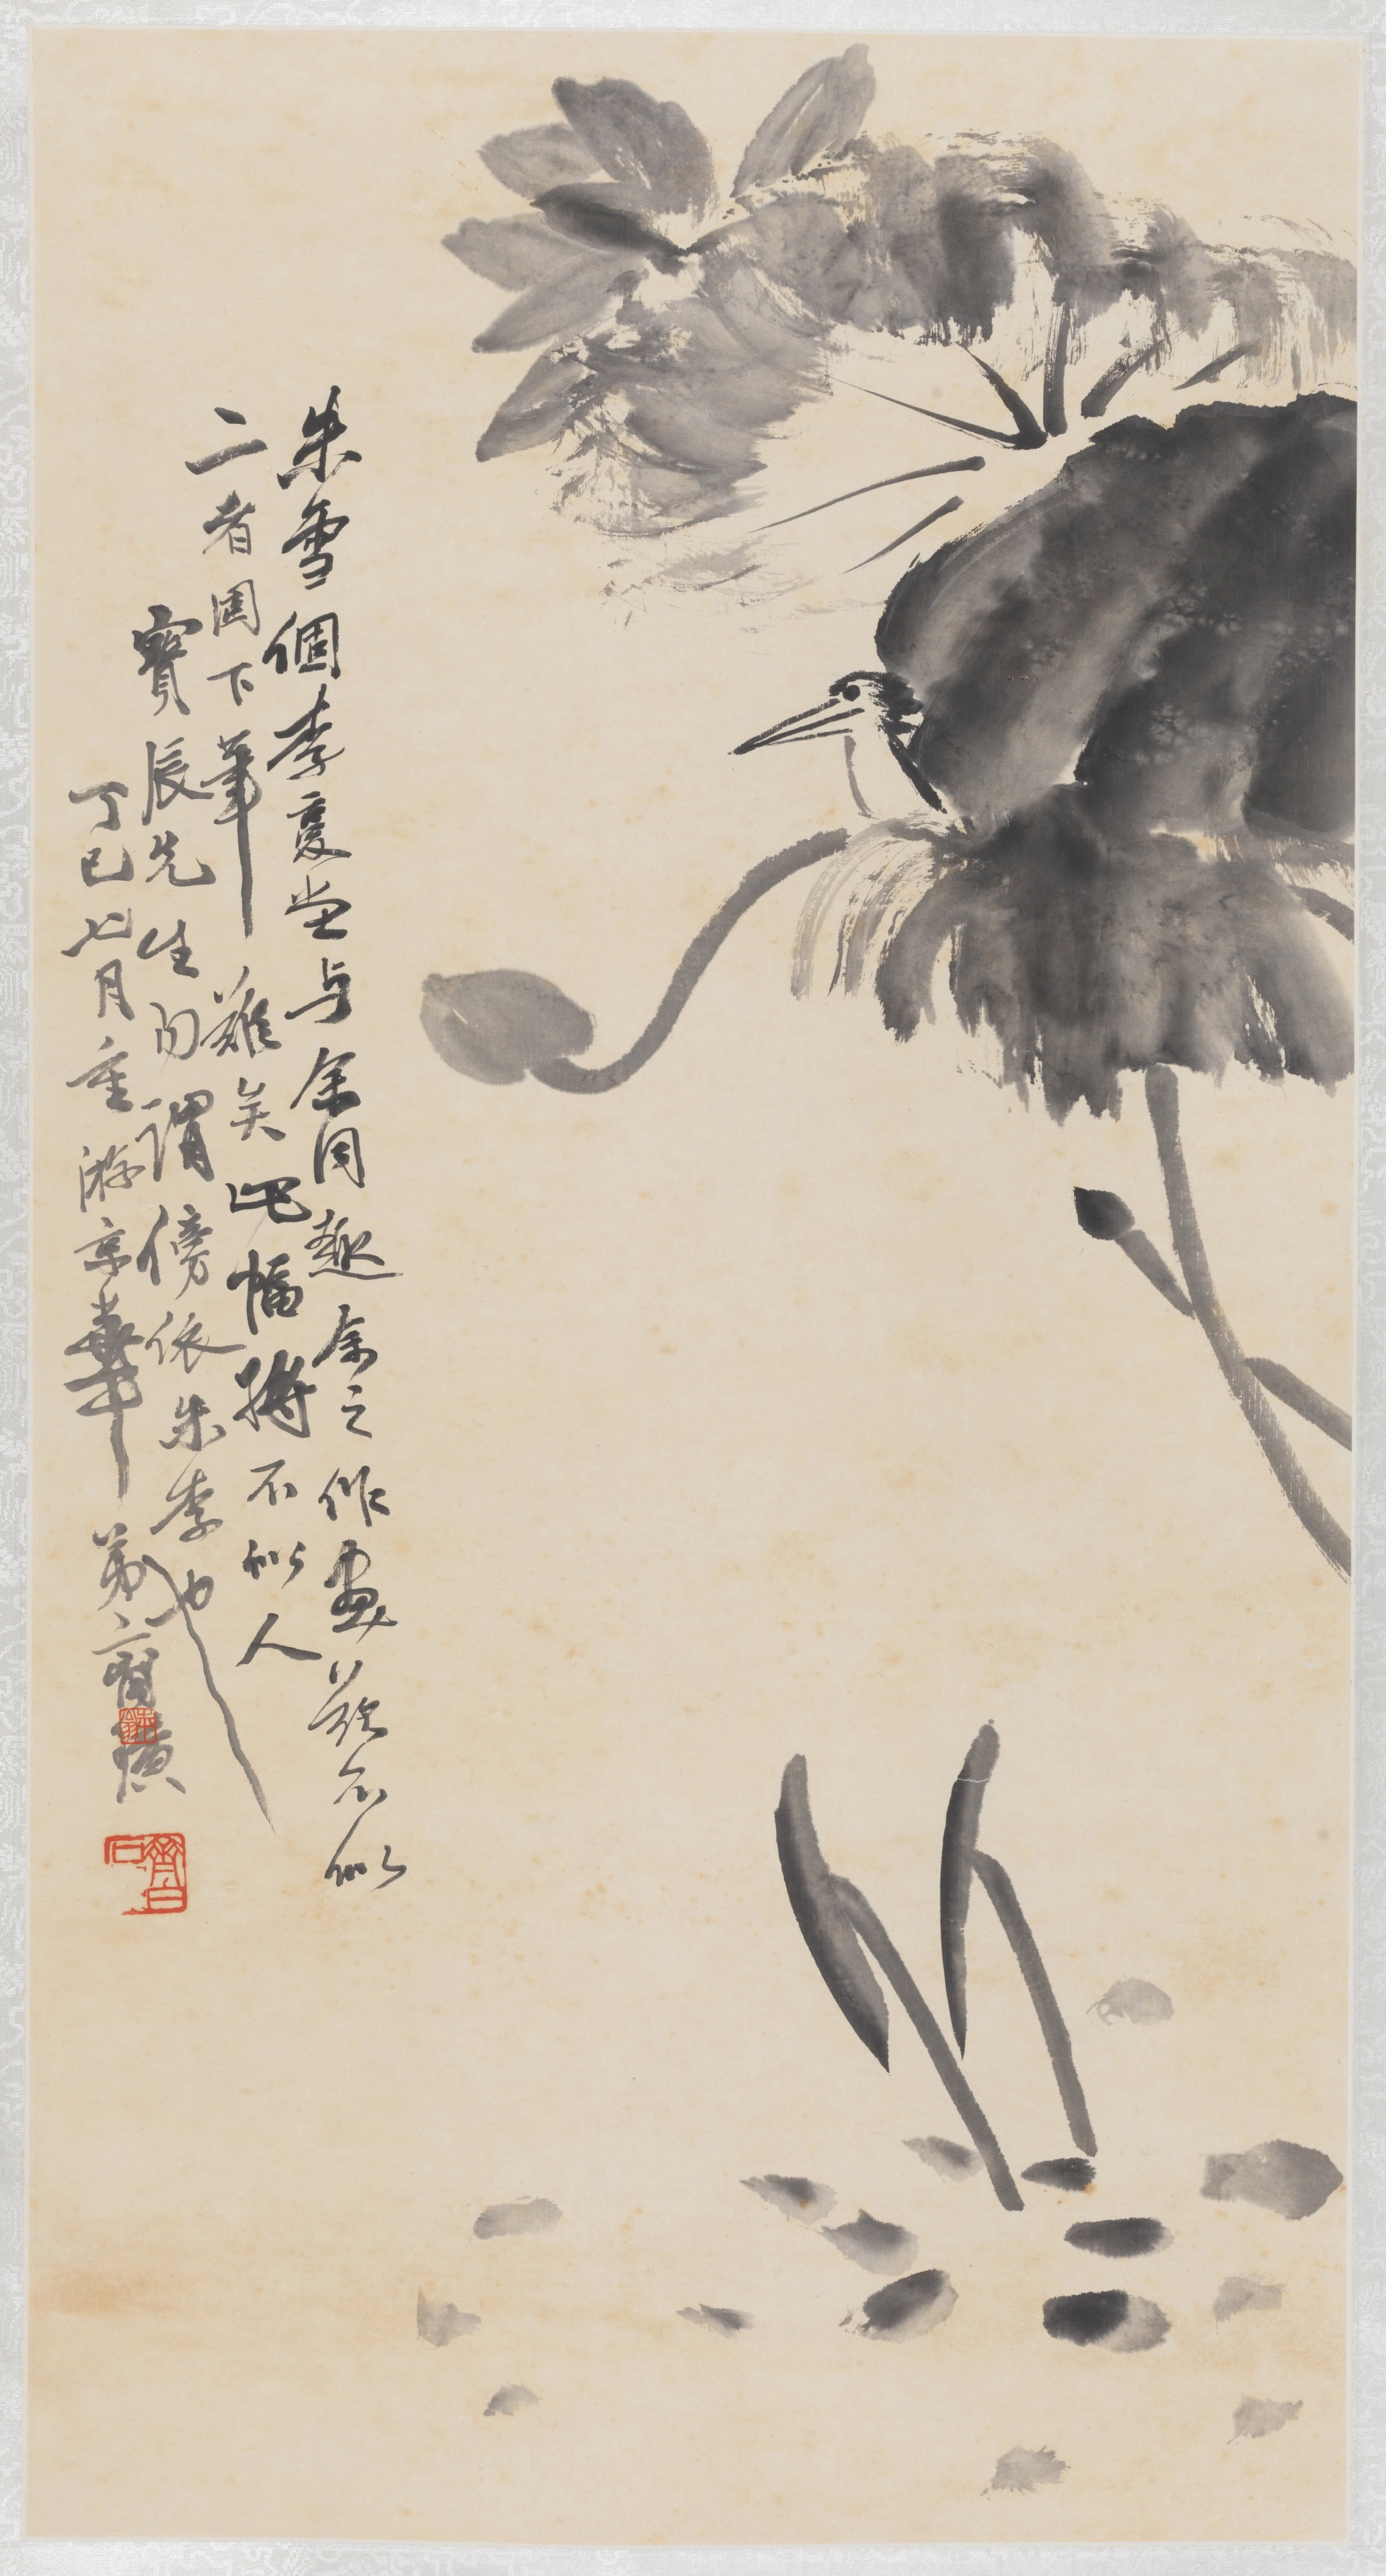 朱雪個李復堂与余同趣余之作畫茲不似
二者固下筆難矣此幅將不似人
寶辰先生勿謂傍依朱李也
丁巳七月重游京華弟齊璜
齊白石